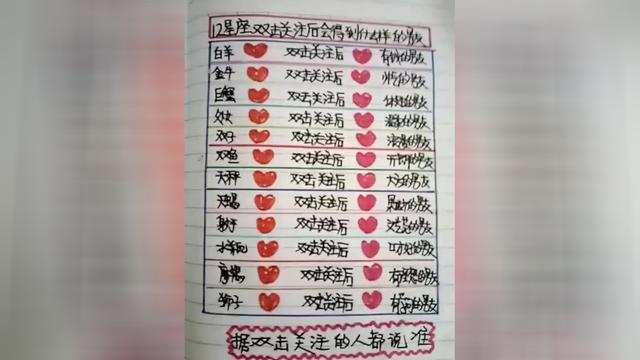 12星座双击关注后会得到什么样的男友
白羊 双击关注后 有钱的男友
金牛 双击关注后 帅气的男友
巨蟹 双击关注后 体贴的男友
处女 双击关注后 温柔的男友
双子 双击关注后 浪漫的男友
双鱼 双击关注后 的男友
天秤 双击关注后 的男友
天蝎 双击关注后 的男友
射手 双击关注后 的男友
水瓶 双击关注后 的男友
摩羯 双击关注后 的男友
狮子 双击关注后 的男友
据双击关注的人都说准